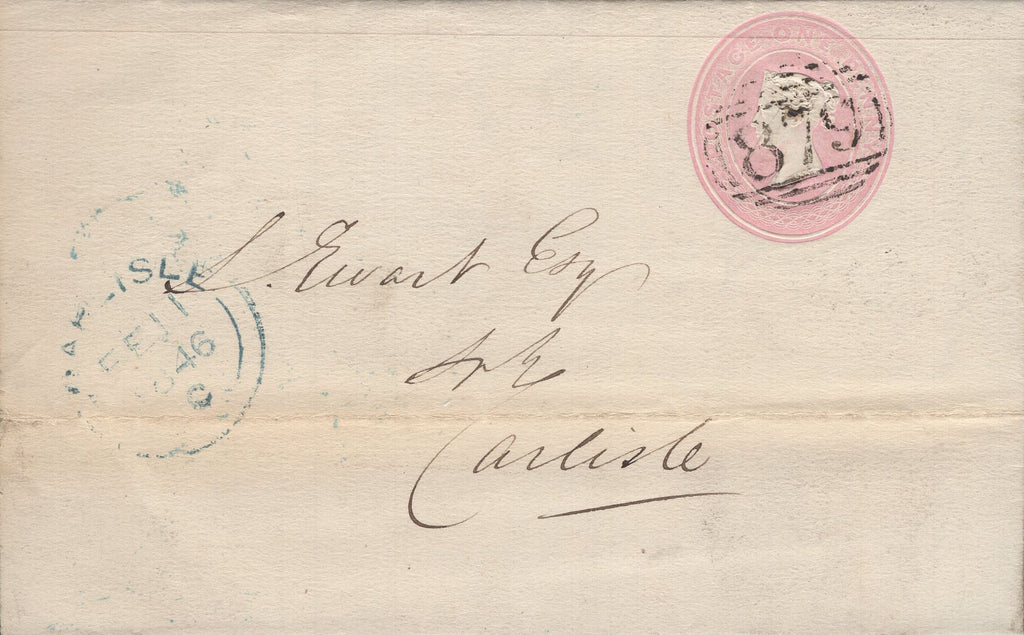 POSTAGE ONE PENNY
879
CARLISLE
FE 11
1846
G
S. Ewart Esq
Carlisle